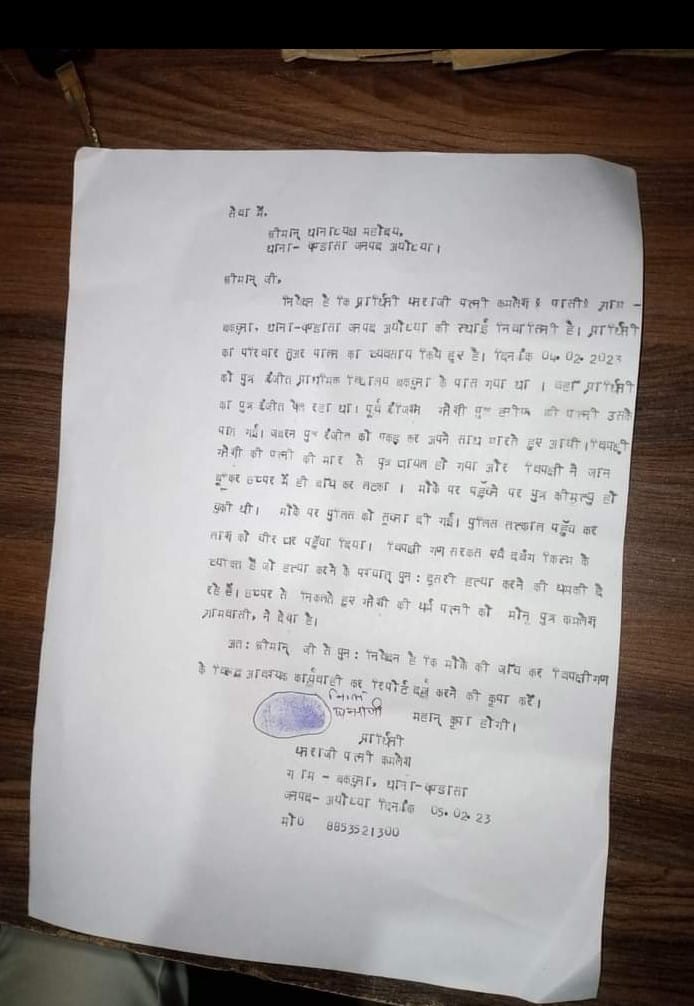 सेवा में,
श्रीमान् थानाध्यक्ष महोदय,
थाना- खण्डासा जनपद अयोध्या।
श्रीमान् जी,
निवेदन है कि प्रार्थिनी पत्नी कमलेश पासी ग्राम -
थाना-खण्डासा जनपद अयोध्या की स्थाई निवासिनी है। प्रार्थिनी
का परिवार सुअर पालन का व्यवसाय किये हुए है। दिनांक 04.02.2023
को पुत्र रंजीत प्राथमिक विद्यालय के पास गया था । वहां प्रार्थिनी
का पुत्र रंजीत खेल रहा था। पूर्व रंजिशन पुत्र की पत्नी उसके
पास गई। जबरन पुत्र रंजीत को पकड़ कर अपने साथ मारते हुए आयी। विपक्षी
की पत्नी की मार से पुत्र घायल हो गया और विपक्षी ने जान
बूझकर छप्पर में ही बांध कर लटका । मौके पर पहुँचने पर पुत्र की मृत्यु हो
चुकी थी। मौके पर पुलिस को सूचना दी गई। पुलिस तत्काल पहुँच कर
लाश को चीर घर पहुँचा दिया। विपक्षी गण सरकस एवं दबंग किस्म के
व्यक्ति हैं जो हत्या करने के पश्चात् पुन: दूसरी हत्या करने की धमकी दे
रहे हैं। छप्पर से निकलते हुए की धर्म पत्नी को मोनू पुत्र कमलेश
ग्रामवासी, ने देखा है।
अत: श्रीमान् जी से पुन: निवेदन है कि मौके की जाँच कर विपक्षीगण
के विरूद्ध आवश्यक कार्यवाही कर रिपोर्ट दर्ज करने की कृपा करें।
महान् कृपा होगी।
प्रार्थिनी
पत्नी कमलेश
ग्राम - थाना-खण्डासा
जनपद- अयोध्या दिनांक 05.02.23
मो0 8853521300